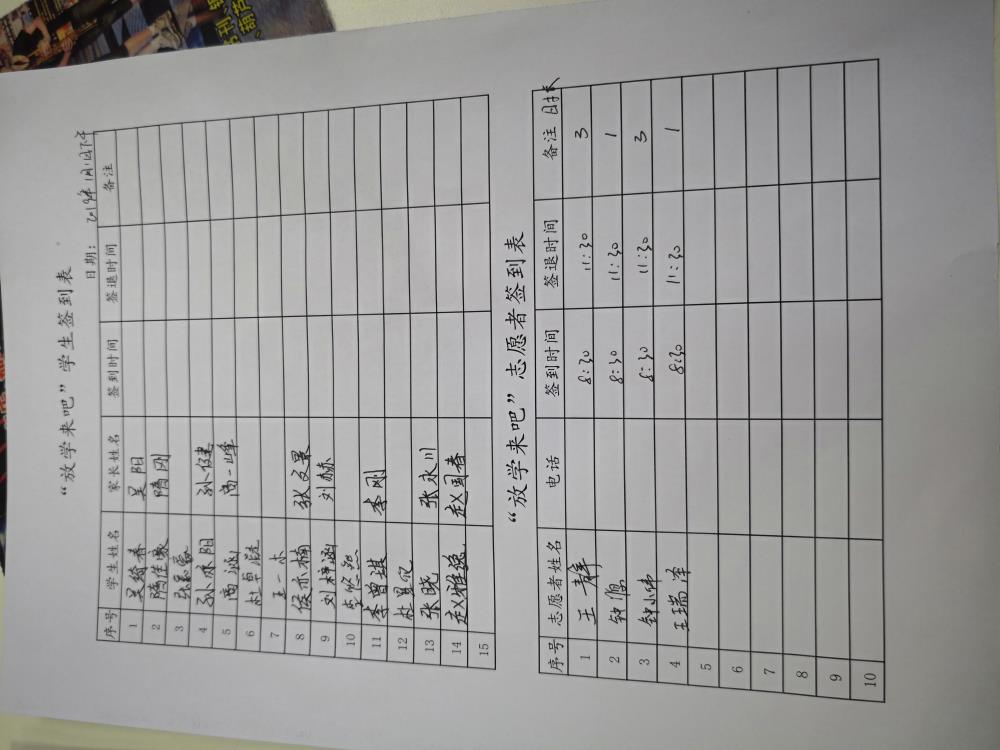 “放学来吧”学生签到表
日期：2019年1月1日下午
序号 学生姓名 家长姓名 签到时间 签退时间 备注
1 吴绮春 吴阳
2 隋佳豪 隋刚
3
4 孙亦阳 孙健
5 高涵 高一峰
6
7 王一木
8 侯亦楠 张文景
9 刘梓涵 刘赫
10 李悠然
11 李曾琪 李刚
12
13 张晓 张永川
14 赵雅逸 赵国春
15
“放学来吧”志愿者签到表
序号 志愿者姓名 电话 签到时间 签退时间 备注
1 王静 8:30 11:30 3
2 钟 8:30 11:30 1
3 钟小伟 8:30 11:30 3
4 王瑞泽 8:30 11:30 1
5
6
7
8
9
10